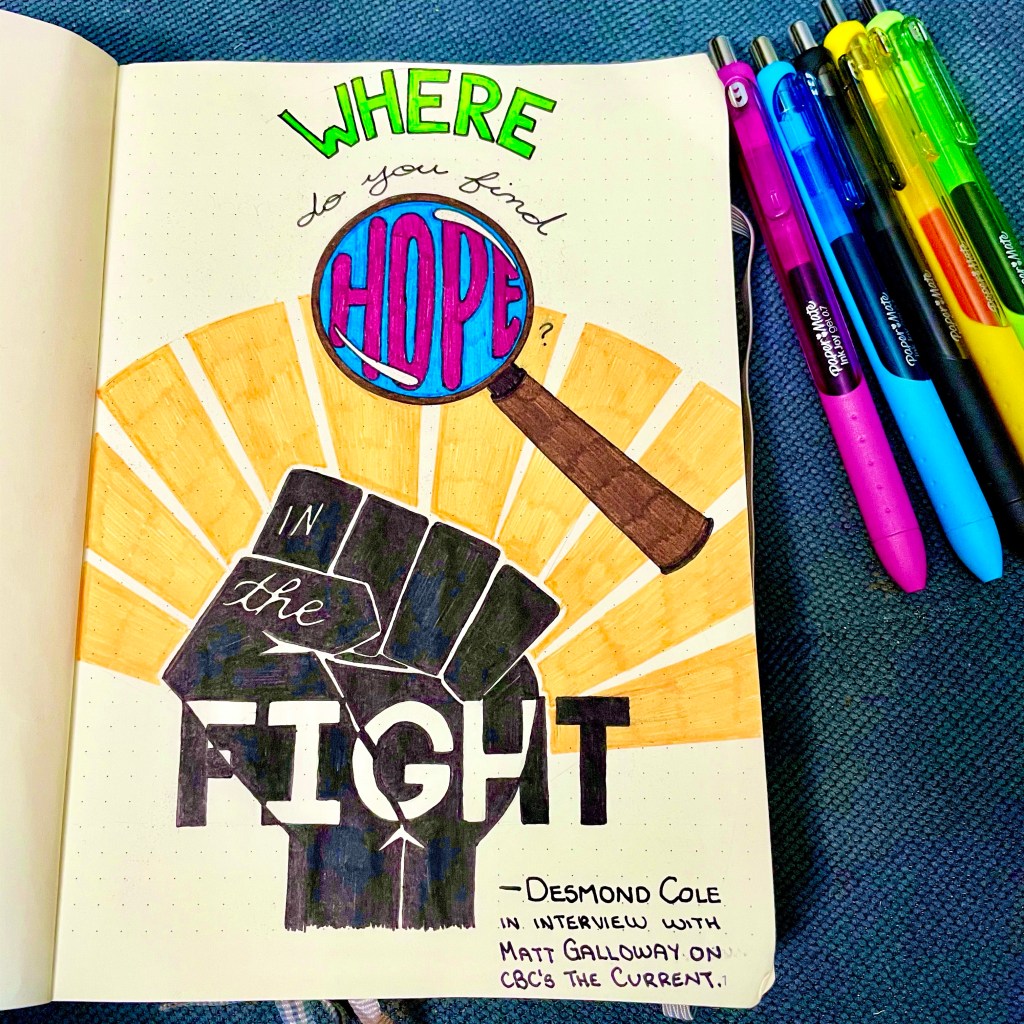 WHERE
do you find
HOPE
?
IN
the
FIGHT
—DESMOND COLE
IN INTERVIEW WITH
MATT GALLOWAY ON
CBC'S THE CURRENT.
Paper Mate
InkJoy Gel 0.7
Paper Mate
Paper Mate
Paper Mate
Paper Mate